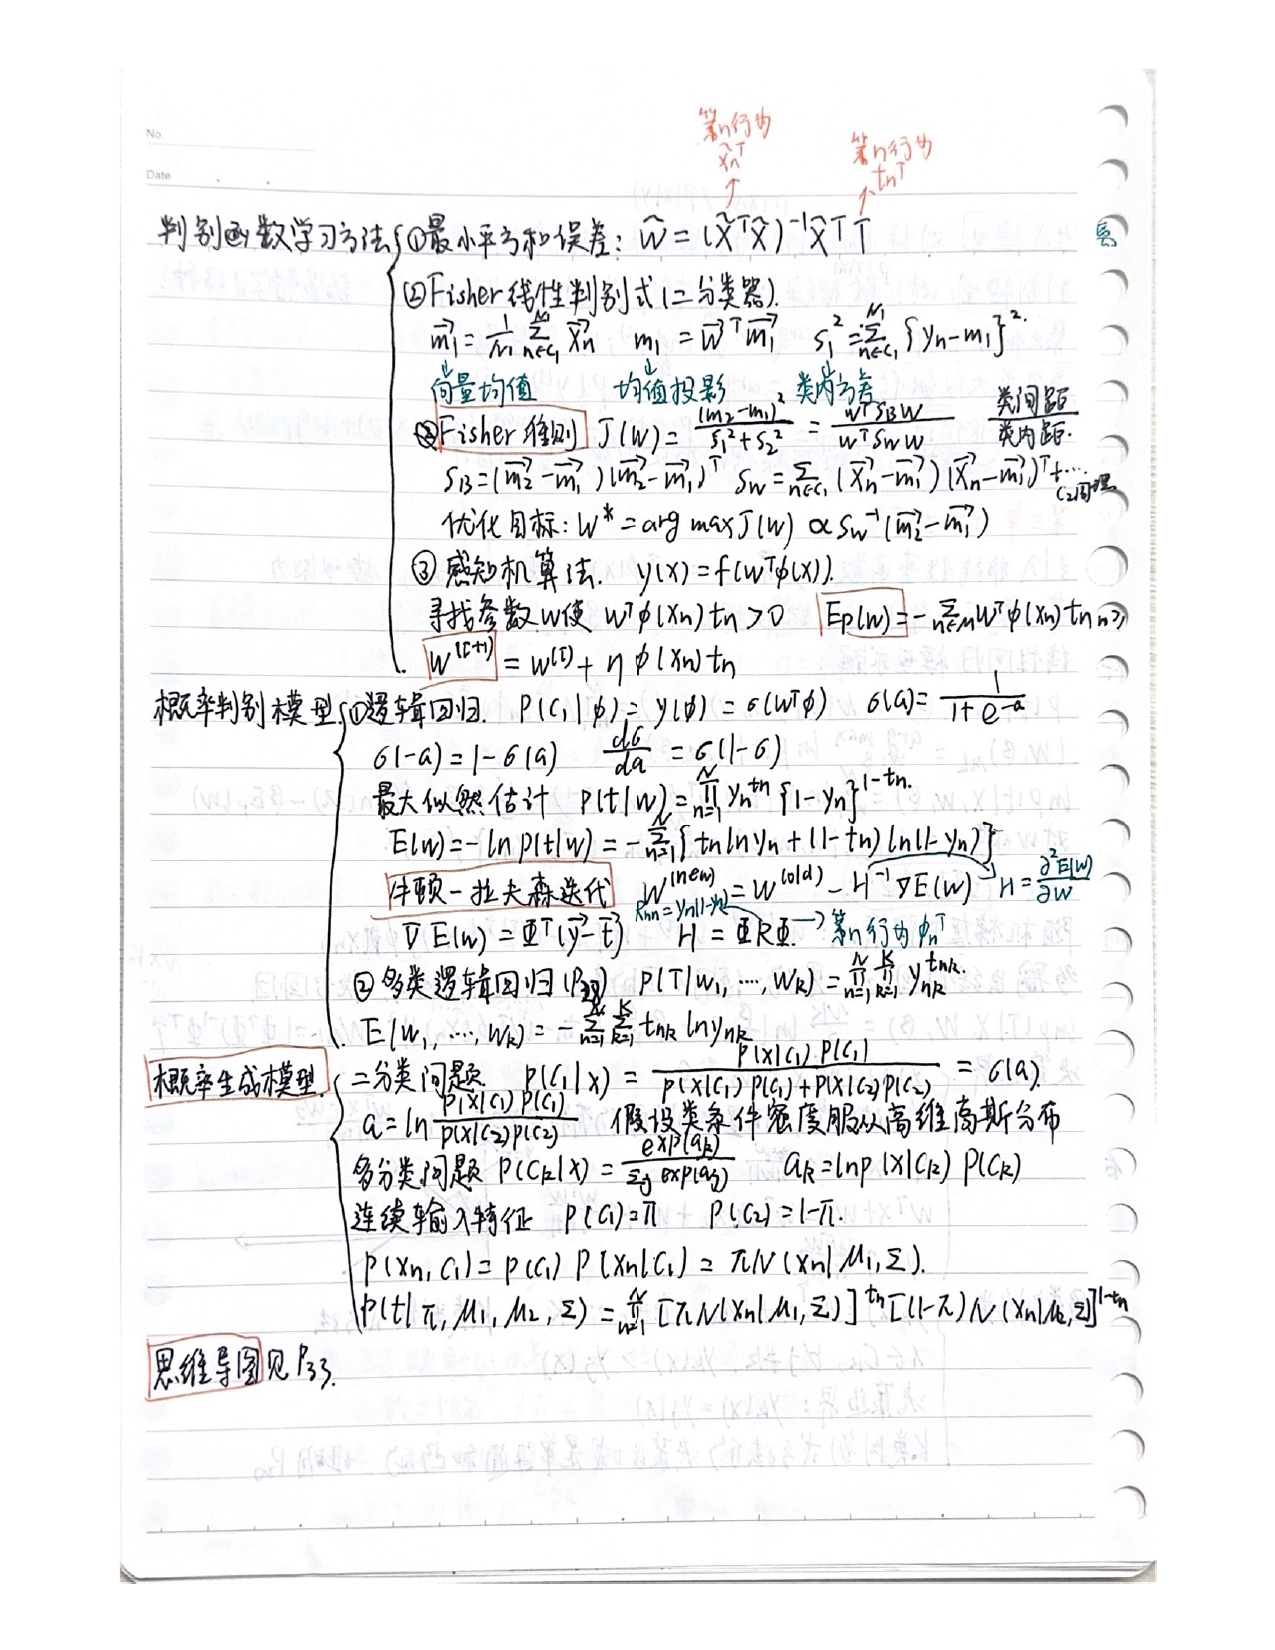 No.
Date
第n行为 x̃nᵀ
第n行为 tnᵀ
判别函数学习方法 ①最小平方和误差: W̃ = (X̃ᵀX̃)⁻¹X̃ᵀT
②Fisher线性判别式(二分类器).
m₁⃗ = 1/N₁ Σ_{n∈C₁}^{N₁} xn⃗  m₁ = w⃗ᵀm₁⃗  s₁² = Σ_{n∈C₁}^{N₁} {yn-m₁}².
向量均值 均值投影 类内方差
Fisher准则 J(w) = (m₂-m₁)²/(s₁²+s₂²) = wᵀS_B w/(wᵀS_W w) 类间距/类内距.
S_B = (m₂⃗-m₁⃗)(m₂⃗-m₁⃗)ᵀ S_W = Σ_{n∈C₁} (xn⃗-m₁⃗)(xn⃗-m₁⃗)ᵀ+... C₂同理
优化目标: w* = arg max J(w) ∝ S_W⁻¹(m₂⃗-m₁⃗)
③感知机算法. y(x) = f(wᵀφ(x)).
寻找参数w使 wᵀφ(xn)tn>0 Ep(w) = -Σ_{n∈M} wᵀφ(xn)tn
w^(τ+1) = w^(τ) + η φ(xn)tn
概率判别模型 ①逻辑回归. P(C₁|φ) = y(φ) = σ(wᵀφ) σ(a) = 1/(1+e⁻ᵃ)
σ(-a) = 1-σ(a) dσ/da = σ(1-σ)
最大似然估计 p(t|w) = Π_{n=1}^{N} yn^{tn} {1-yn}^{1-tn}.
E(w) = -ln p(t|w) = -Σ_{n=1}^{N} {tn ln yn + (1-tn) ln(1-yn)}
牛顿-拉夫森迭代 W^(new) = W^(old) - H⁻¹∇E(w) H = ∂²E(w)/∂w
Rnn = yn(1-yn)
∇E(w) = Φᵀ(y⃗-t⃗) H = ΦRΦ. → 第n行为φnᵀ
②多类逻辑回归 P(T|w₁, ..., w_k) = Π_{n=1}^{N} Π_{k=1}^{K} y_nk^{t_nk}.
E(w₁, ..., w_k) = -Σ_{n=1}^{N} Σ_{k=1}^{K} t_nk ln y_nk
概率生成模型. 二分类问题. P(C₁|x) = P(x|C₁)·P(C₁)/(P(x|C₁)P(C₁)+P(x|C₂)P(C₂)) = σ(a).
a = ln P(x|C₁)P(C₁)/(P(x|C₂)P(C₂)) 假设类条件密度服从高维高斯分布
多分类问题 P(C_k|x) = exp(a_k)/Σ_j exp(a_j) a_k = ln p(x|C_k) P(C_k)
连续输入特征 P(C₁)=π P(C₂)=1-π.
P(xn, C₁) = P(C₁) P(xn|C₁) = πN(xn|μ₁,Σ).
P(t|π, μ₁, μ₂, Σ) = Π_{n=1}^{N} [πN(xn|μ₁,Σ)]^{tn} [(1-π)N(xn|μ₂,Σ)]^{1-tn}
思维导图见P33.